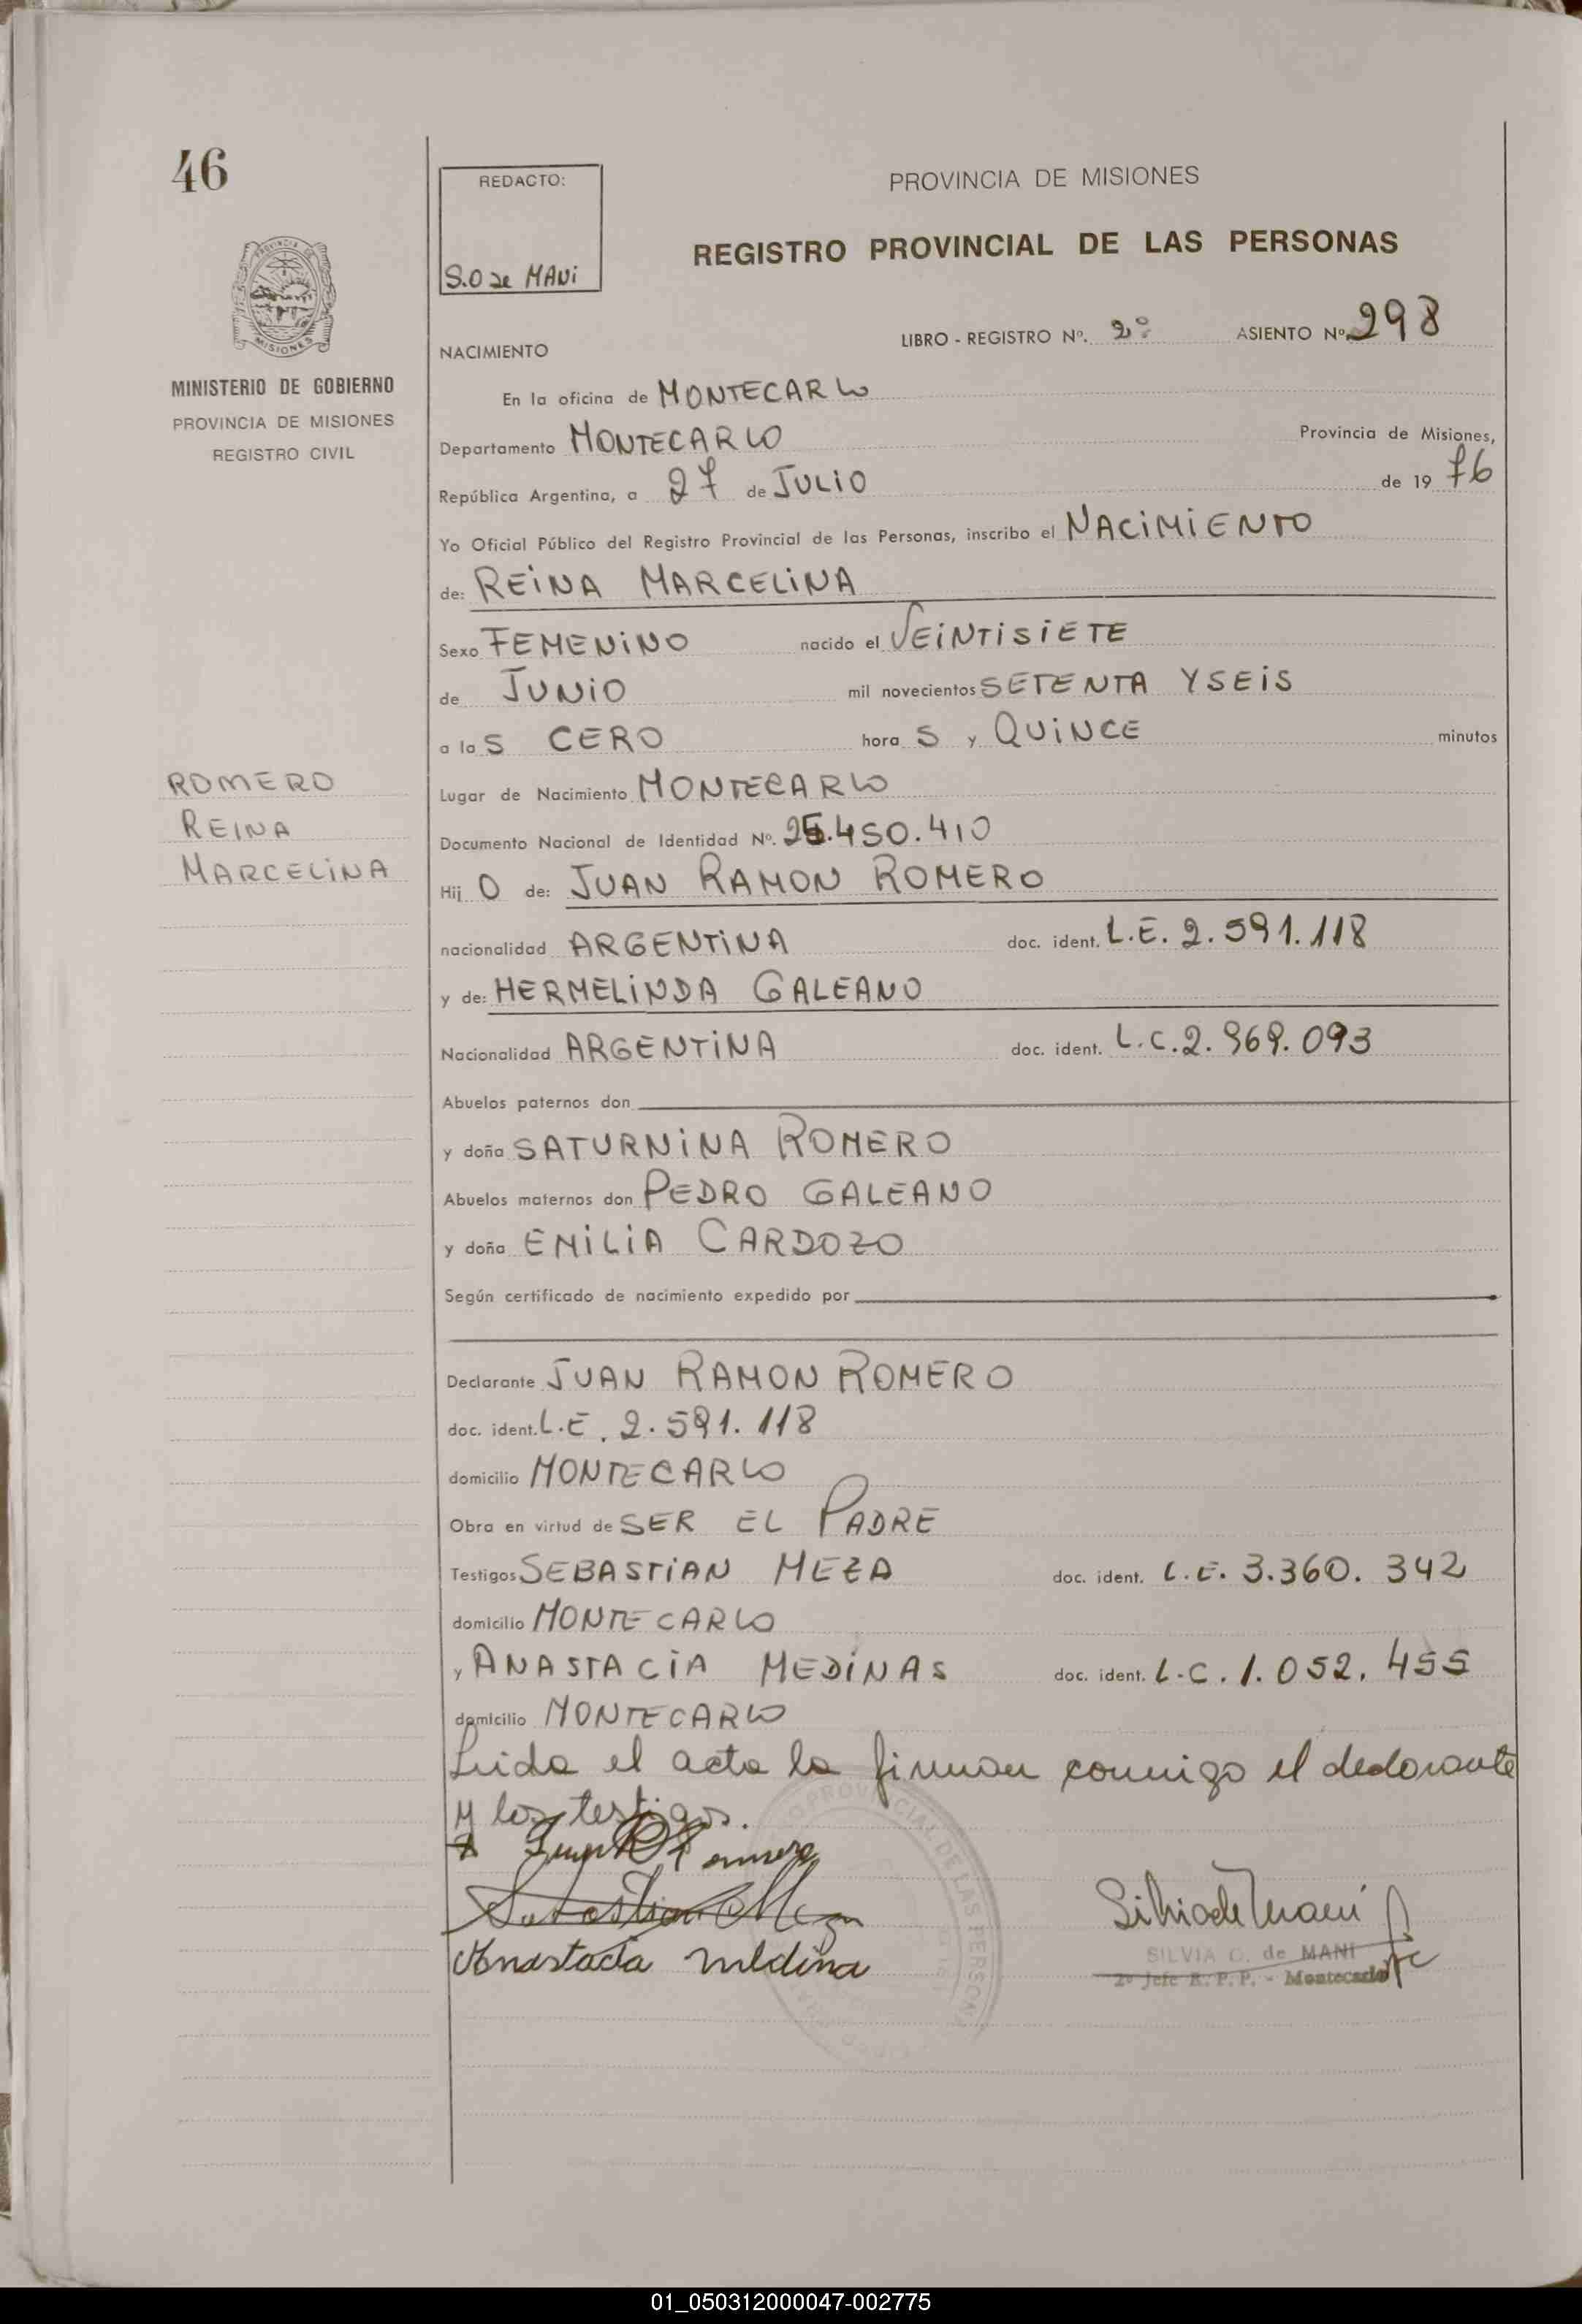 46
REDACTO:
S.O de MANi
PROVINCIA DE MISIONES
REGISTRO PROVINCIAL DE LAS PERSONAS
MISIONES
MINISTERIO DE GOBIERNO
PROVINCIA DE MISIONES
REGISTRO CIVIL
NACIMIENTO
LIBRO - REGISTRO Nº. 2º ASIENTO Nº 298
En la oficina de MONTECARLO
Departamento MONTECARLO Provincia de Misiones,
República Argentina, a 27 de JULIO de 19 76
Yo Oficial Público del Registro Provincial de las Personas, inscribo el NACIMIENTO
de: REINA MARCELINA
Sexo FEMENINO nacido el VEINTISIETE
de JUNIO mil novecientos SETENTA Y SEIS
a la S CERO hora S y QUINCE minutos
ROMERO
REINA
MARCELINA
Lugar de Nacimiento MONTECARLO
Documento Nacional de Identidad Nº. 25.450.410
Hij O de: JUAN RAMON ROMERO
nacionalidad ARGENTINA doc. ident. L.E. 2.591.118
y de: HERMELINDA GALEANO
Nacionalidad ARGENTINA doc. ident. L.C. 2.969.093
Abuelos paternos don
y doña SATURNINA ROMERO
Abuelos maternos don PEDRO GALEANO
y doña EMILIA CARDOZO
Según certificado de nacimiento expedido por
Declarante JUAN RAMON ROMERO
doc. ident. L.E. 2.591.118
domicilio MONTECARLO
Obra en virtud de SER EL PADRE
Testigos SEBASTIAN MEZA doc. ident. L.E. 3.360.342
domicilio MONTECARLO
y ANASTACIA MEDINAS doc. ident. L.C. 1.052.455
domicilio MONTECARLO
Leida el acta la firman conmigo el declarante
y los testigos.
Juan R Romero
Sebastian Meza
Anastacia medina
Silvia de Mani
SILVIA O. de MANI
2º Jefe R. P. P. - Montecarlo
01_050312000047-002775